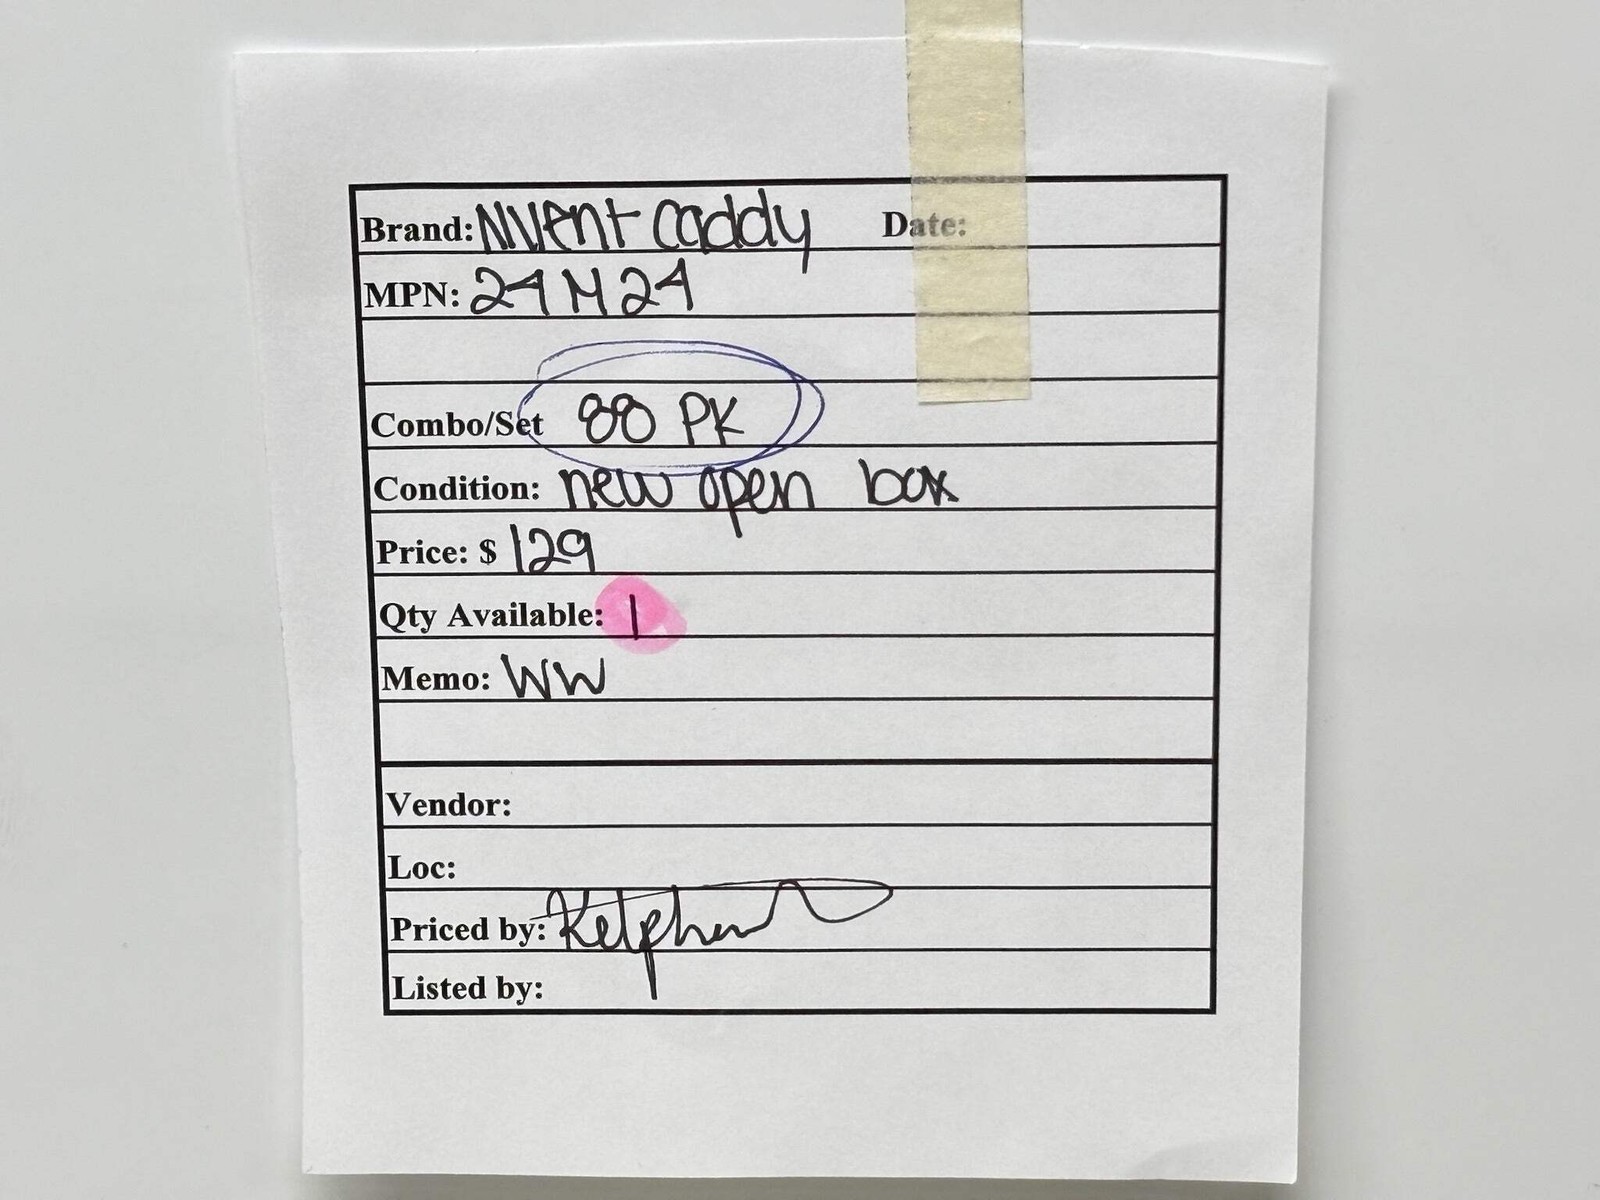 Brand: NVent Caddy Date:
MPN: 24M24
Combo/Set 88 PK
Condition: new open box
Price: $ 129
Qty Available: 1
Memo: WW
Vendor:
Loc:
Priced by:
Listed by: